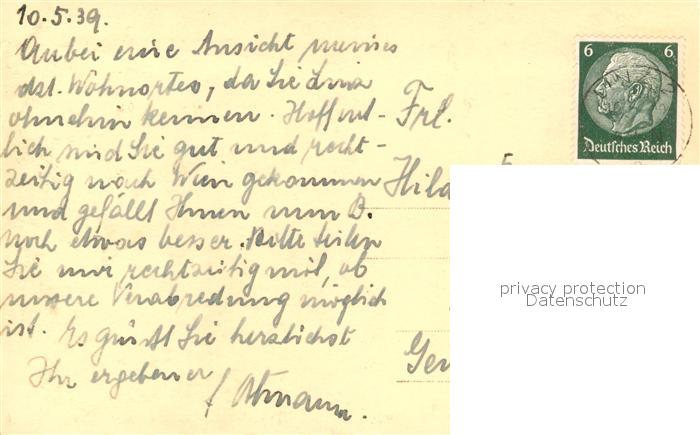 10.5.39.
Anbei eine Ansicht meines
dzt. Wohnortes, da Sie Linz
ohnehin kennen. Hoffent-
lich sind Sie gut und recht-
zeitig nach Wien gekommen
und gefällt Ihnen nun B.
noch etwas besser. Bitte teilen
Sie mir rechtzeitig mit, ob
unsere Verabredung möglich
ist. Es grüßt Sie herzlichst
Ihr ergebener
Frl.
Hild
Gen
6 6
Deutsches Reich
privacy protection
Datenschutz